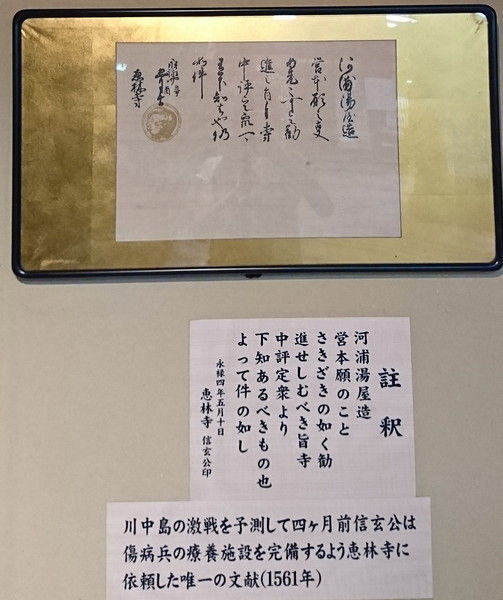 河浦湯屋造
営本願之事
進之旨自寺
中評定衆可
如件
恵林寺
註釈
河浦湯屋造
営本願のこと
さきざきの如く勧
進せしむべき旨寺
中評定衆より
下知あるべきもの也
よって件の如し
永禄四年五月十日
恵林寺 信玄公印
川中島の激戦を予測して四ヶ月前信玄公は
傷病兵の療養施設を完備するよう恵林寺に
依頼した唯一の文献(1561年)